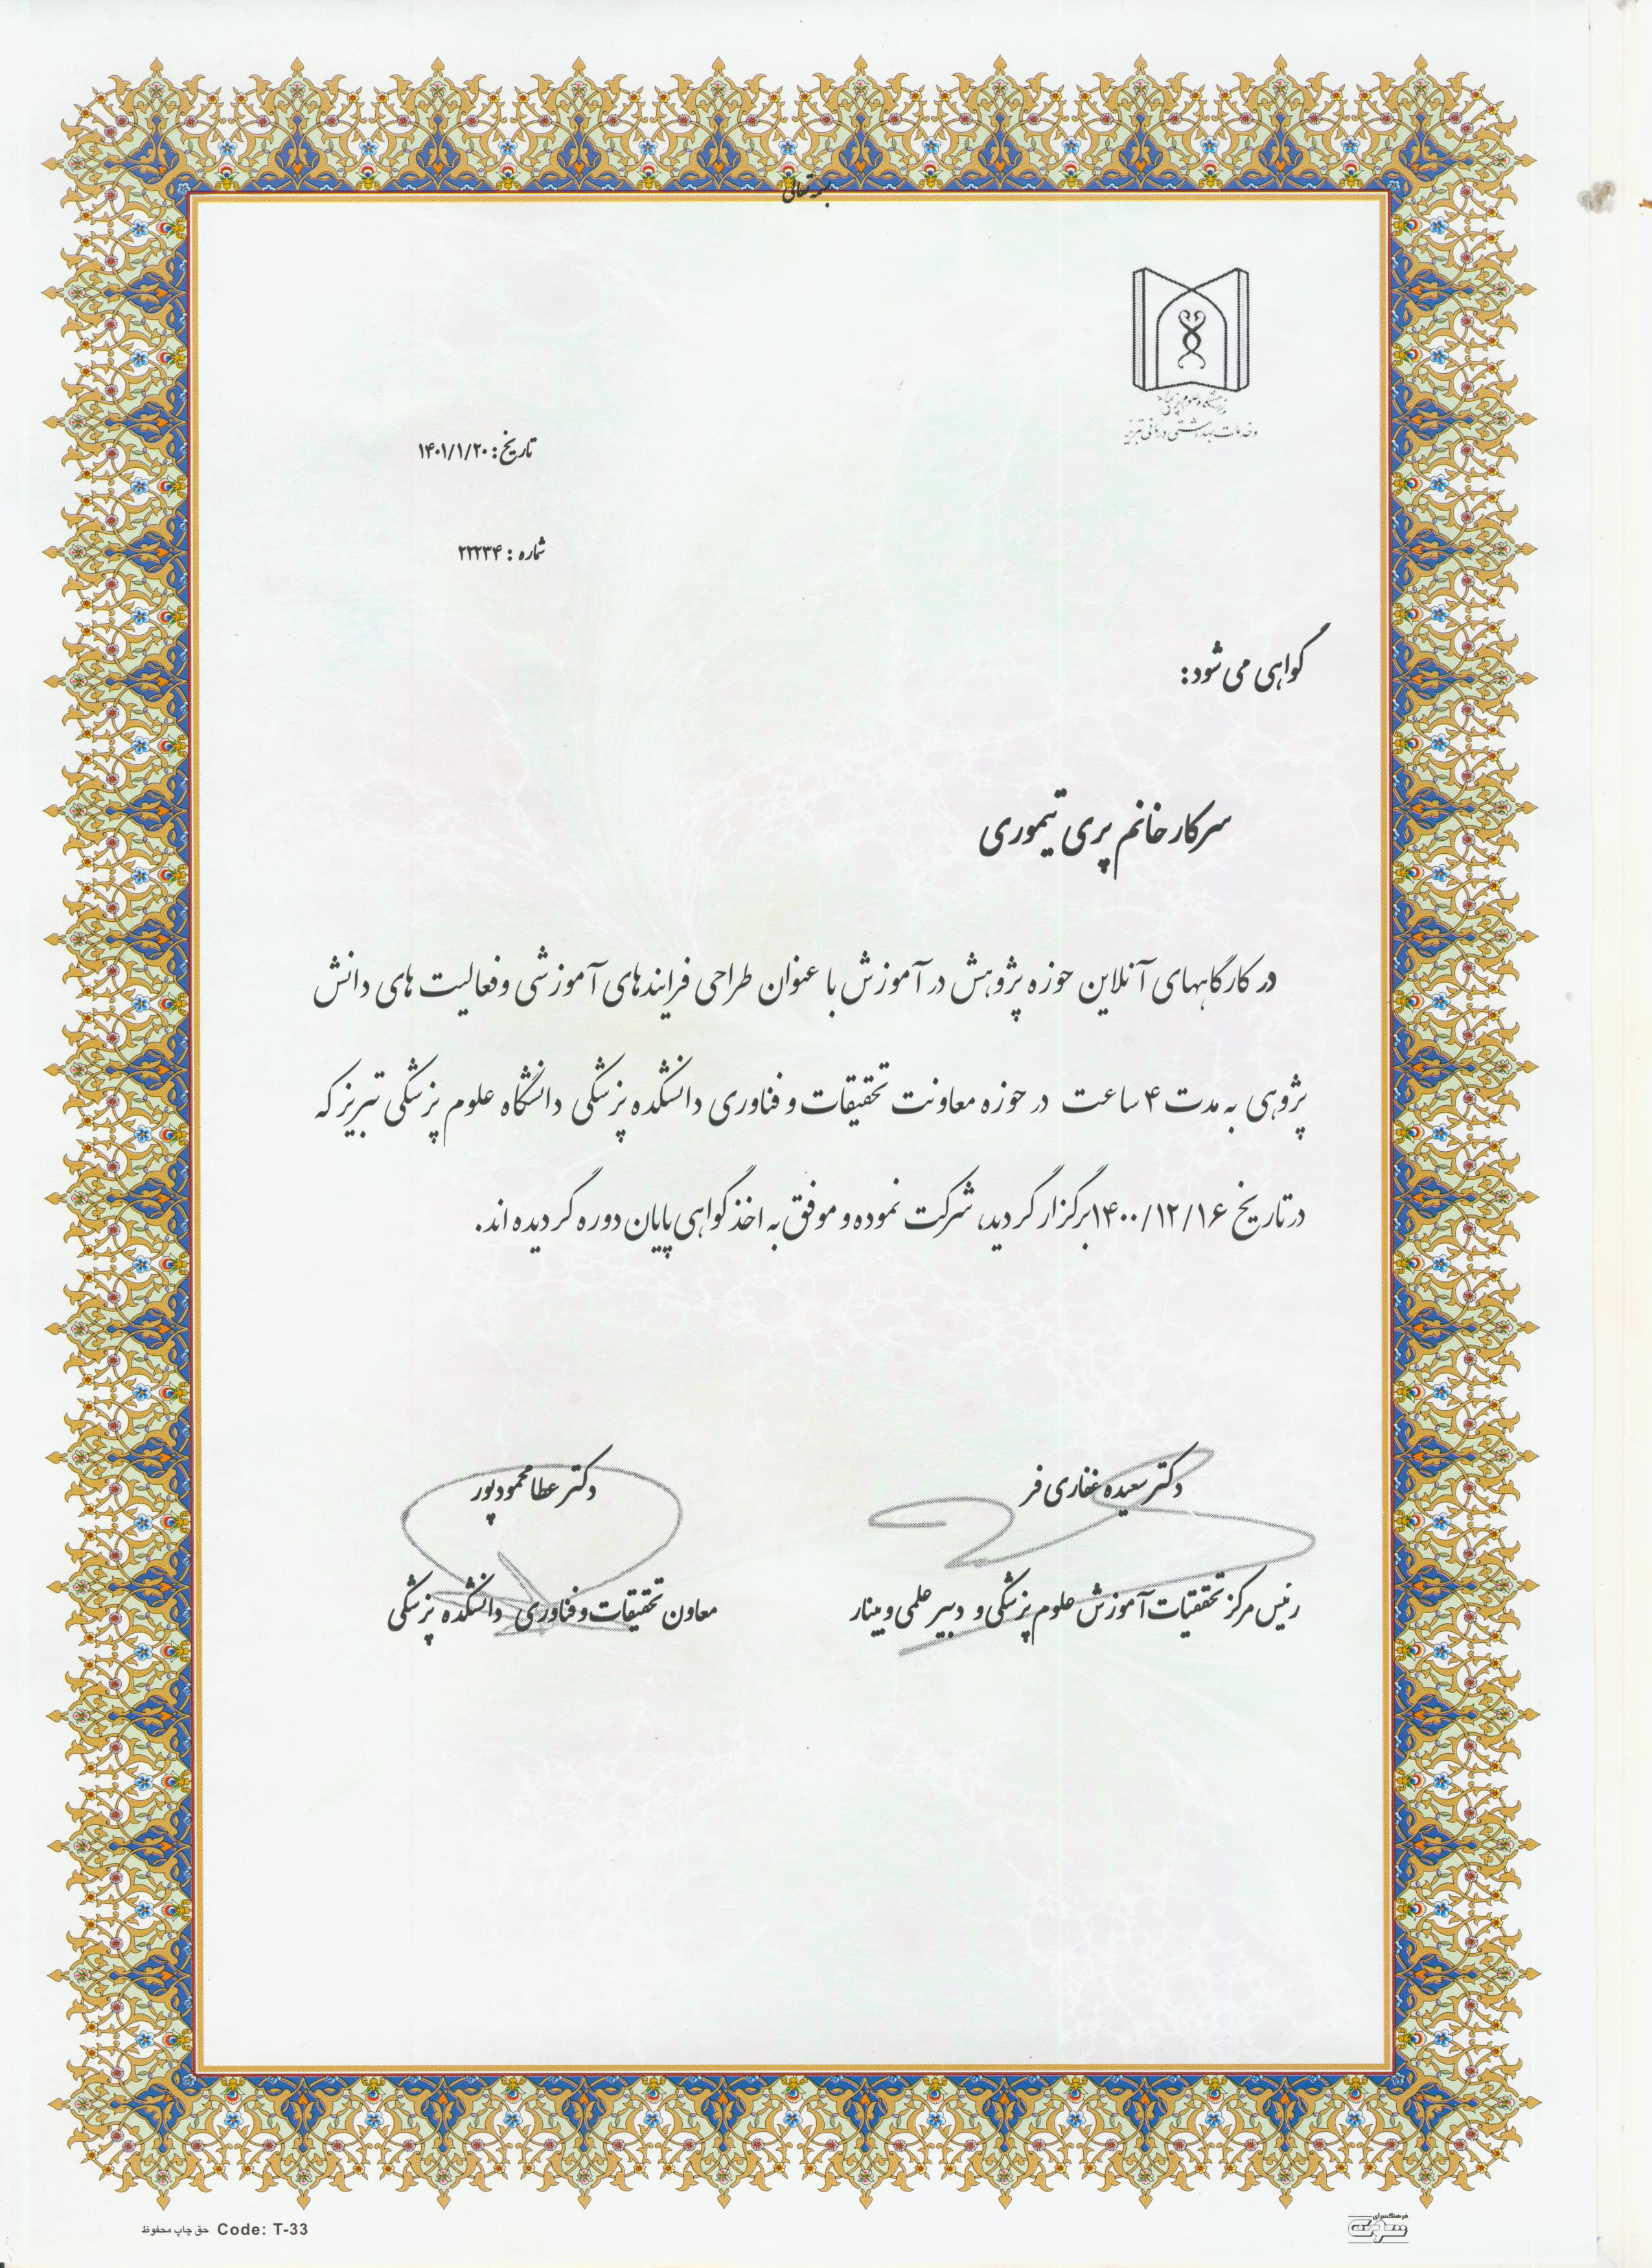 بسمه تعالی
و خدمات بهداشتی درمانی تبریز
تاریخ: ۱۴۰۱/۱/۲۰
شماره: ۲۲۲۳۴
گواهی می شود:
سرکار خانم پری تیموری
در کارگاههای آنلاین حوزه پژوهش در آموزش با عنوان طراحی فرایندهای آموزشی و فعالیت های دانش
پژوهی به مدت ۴ ساعت در حوزه معاونت تحقیقات و فناوری دانشکده پزشکی دانشگاه علوم پزشکی تبریز که
در تاریخ ۱۴۰۰/۱۲/۱۶ برگزار گردید، شرکت نموده و موفق به اخذ گواهی پایان دوره گردیده اند.
دکتر سعیده غفاری فر
رئیس مرکز تحقیقات آموزش علوم پزشکی و دبیر علمی وبینار
دکتر عطا محمودپور
معاون تحقیقات و فناوری دانشکده پزشکی
حق چاپ محفوظ Code: T-33
فرهنگسرای